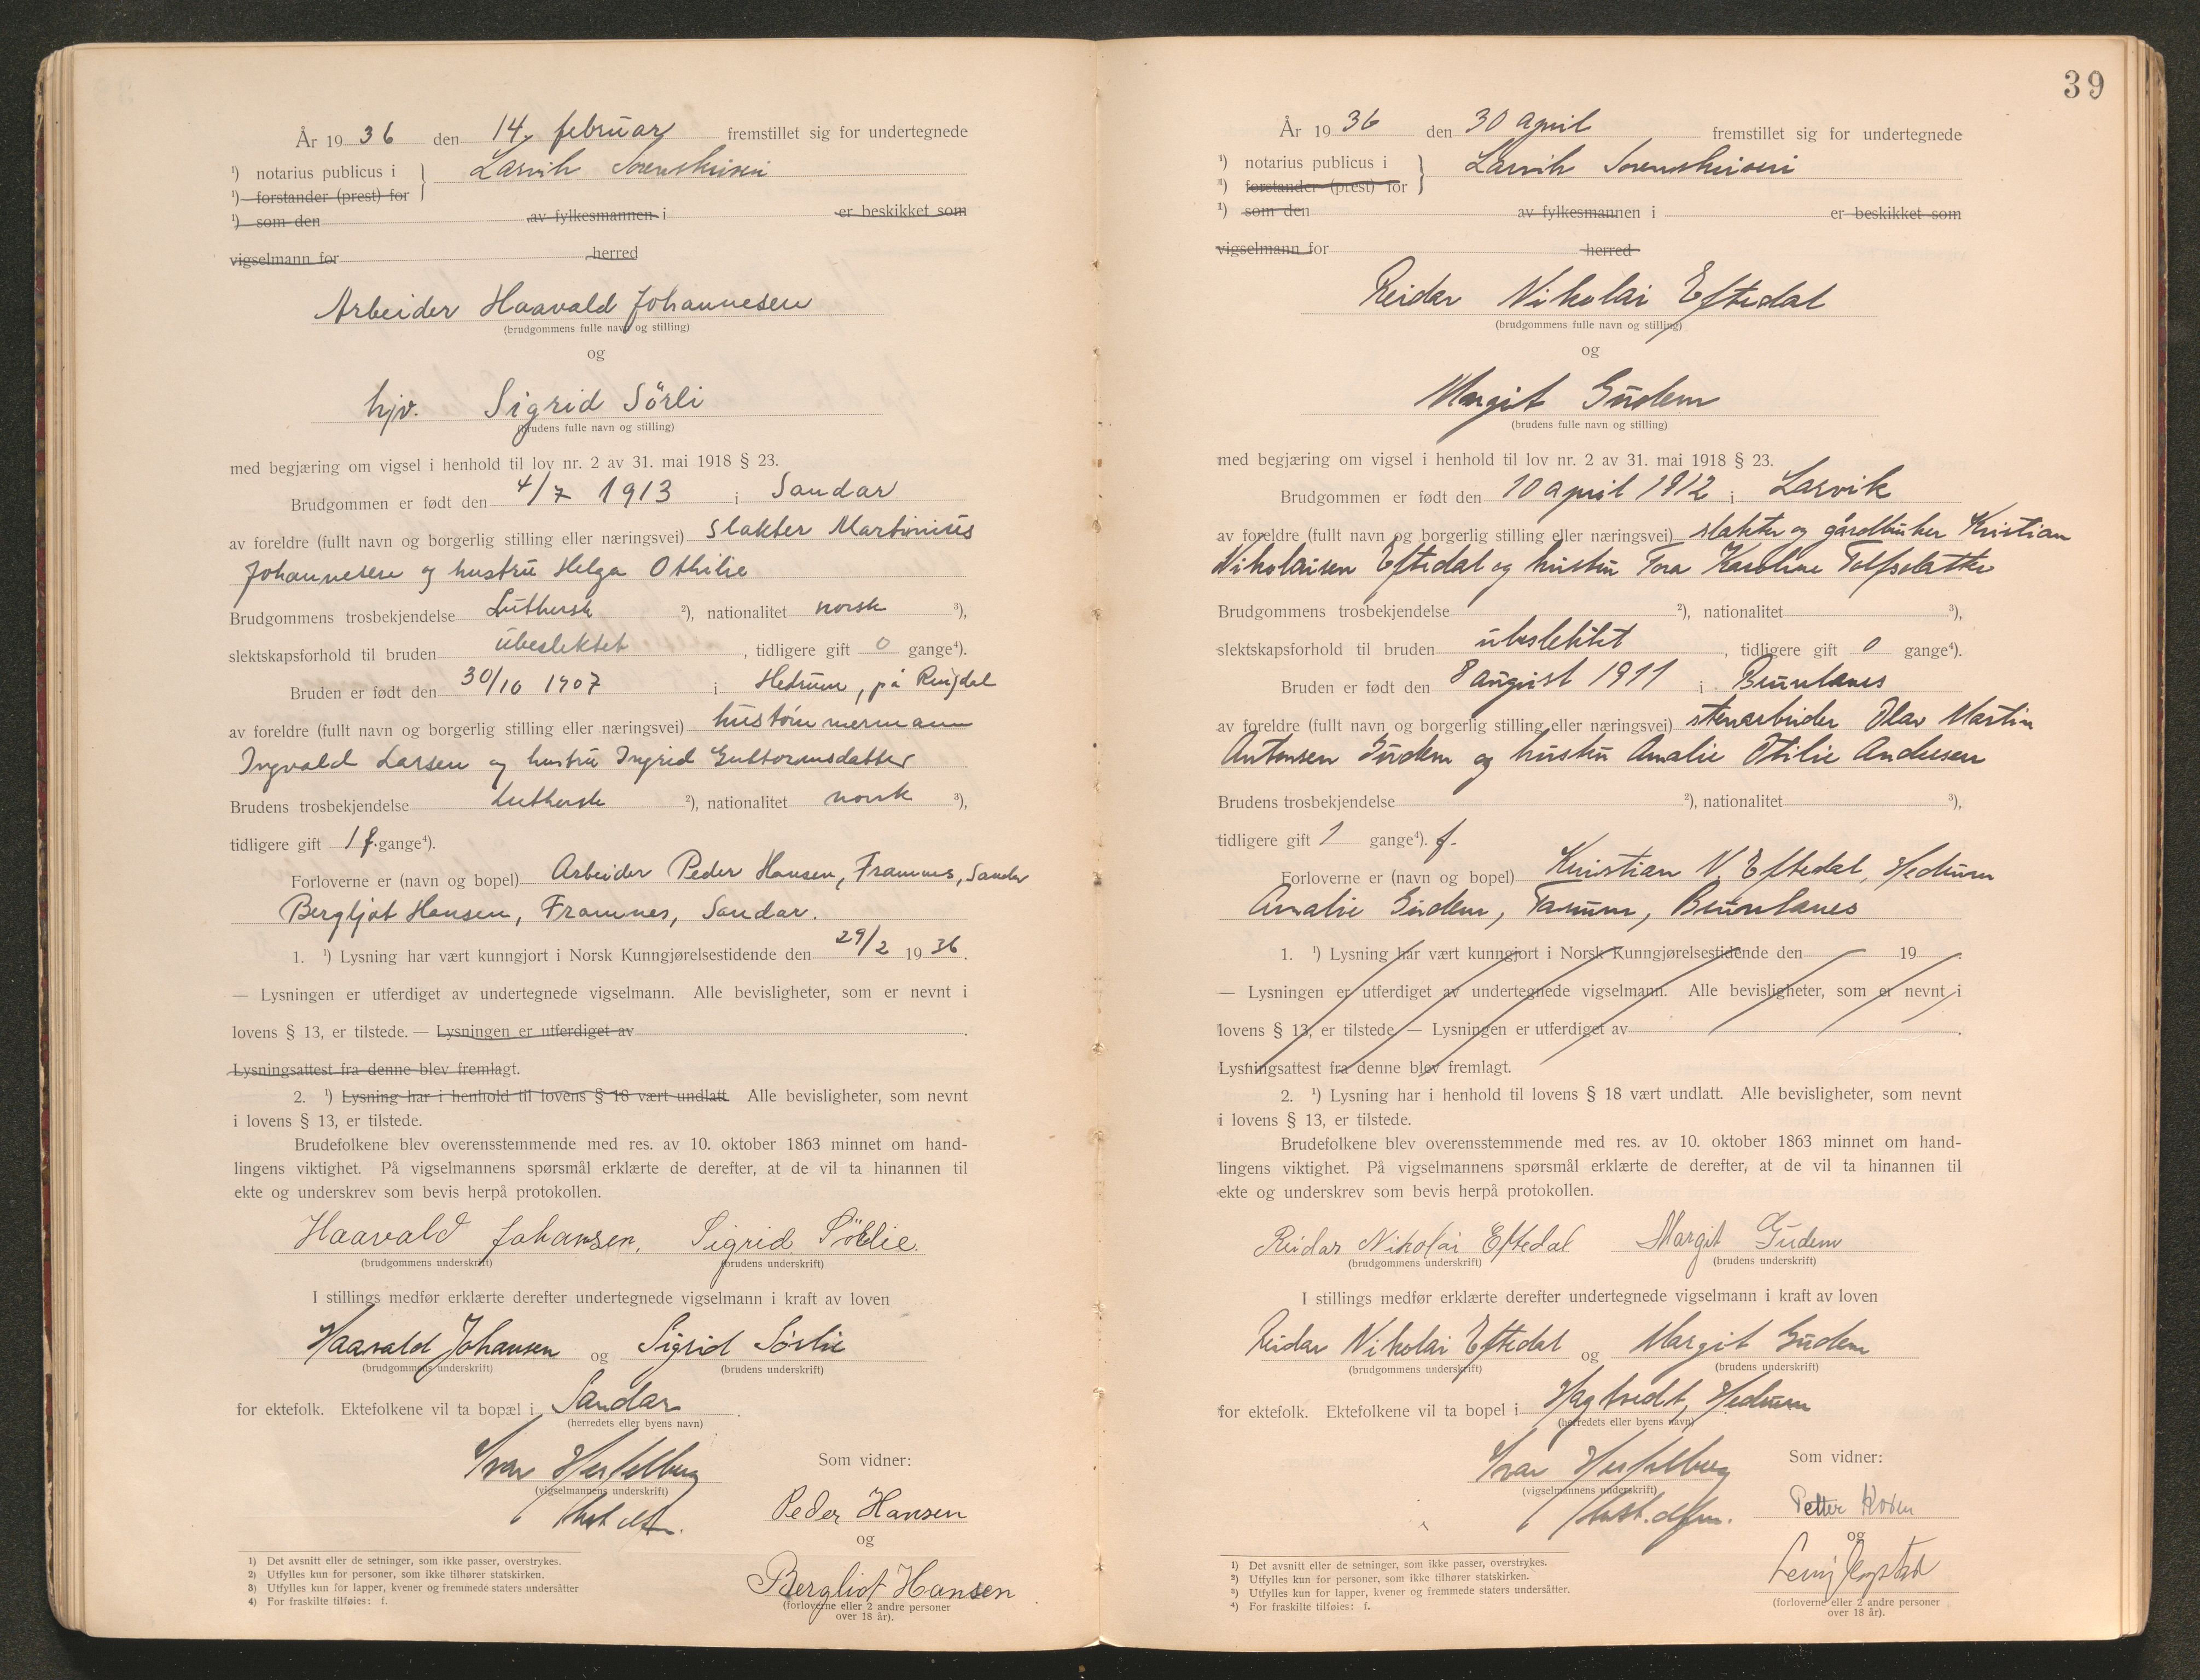 År 1936 den 14. februar fremstillet sig for undertegnede
¹) notarius publicus i } Larvik Sorenskriveri
¹) forstander (prest) for
¹) som den av fylkesmannen i er beskikket som
vigselmann for herred
Arbeider Haavald Johannesen
(brudgommens fulle navn og stilling)
og
hjv. Sigrid Sörli
(brudens fulle navn og stilling)
med begjæring om vigsel i henhold til lov nr. 2 av 31. mai 1918 § 23.
Brudgommen er født den 4/7 1913 i Sandar
av foreldre (fullt navn og borgerlig stilling eller næringsvei) slakter Martinius
Johannesen og hustru Helga Othilie
Brudgommens trosbekjendelse Luthersk ²), nationalitet norsk ³),
slektskapsforhold til bruden ubeslektet, tidligere gift 0 gange⁴).
Bruden er født den 30/10 1907 i Hedrum, på Ringdal
av foreldre (fullt navn og borgerlig stilling eller næringsvei) hustømmermann
Ingvald Larsen og hustru Ingrid Guttormsdatter
Brudens trosbekjendelse Luthersk ²), nationalitet norsk ³),
tidligere gift 1 f. gange⁴).
Forloverne er (navn og bopel) Arbeider Peder Hansen, Framnes, Sandar
Bergljot Hansen, Framnes, Sandar.
1. ¹) Lysning har vært kunngjort i Norsk Kunngjørelsestidende den 29/2 1936.
— Lysningen er utferdiget av undertegnede vigselmann. Alle bevisligheter, som er nevnt i
lovens § 13, er tilstede. — Lysningen er utferdiget av .
Lysningsattest fra denne blev fremlagt.
2. ¹) Lysning har i henhold til lovens § 18 vært undlatt. Alle bevisligheter, som nevnt
i lovens § 13, er tilstede.
Brudefolkene blev overensstemmende med res. av 10. oktober 1863 minnet om hand-
lingens viktighet. På vigselmannens spørsmål erklærte de derefter, at de vil ta hinannen til
ekte og underskrev som bevis herpå protokollen.
Haavald Johansen. Sigrid Sörlie.
(brudgommens underskrift) (brudens underskrift)
I stillings medfør erklærte derefter undertegnede vigselmann i kraft av loven
Haavald Johansen og Sigrid Sörlie
(brudgommens underskrift) (brudens underskrift)
for ektefolk. Ektefolkene vil ta bopæl i Sandar.
(herredets eller byens navn)
Som vidner:
Ivar Hesselberg
(vigselmannens underskrift)
Peder Hansen
og
Bergliot Hansen
(forloverne eller 2 andre personer
over 18 år).
1) Det avsnitt eller de setninger, som ikke passer, overstrykes.
2) Utfylles kun for personer, som ikke tilhører statskirken.
3) Utfylles kun for lapper, kvener og fremmede staters undersåtter
4) For fraskilte tilføies: f.
39
År 1936 den 30 april fremstillet sig for undertegnede
¹) notarius publicus i } Larvik Sorenskriveri
¹) forstander (prest) for
¹) som den av fylkesmannen i er beskikket som
vigselmann for herred
Reidar Nikolai Eftedal
(brudgommens fulle navn og stilling)
og
Margit Gudem
(brudens fulle navn og stilling)
med begjæring om vigsel i henhold til lov nr. 2 av 31. mai 1918 § 23.
Brudgommen er født den 10 april 1912 i Larvik
av foreldre (fullt navn og borgerlig stilling eller næringsvei) slakter og gårdbruker Kristian
Nikolaisen Eftedal og hustru Tora Karoline
Brudgommens trosbekjendelse ²), nationalitet ³),
slektskapsforhold til bruden ubeslektet, tidligere gift 0 gange⁴).
Bruden er født den 8 august 1911 i Brunlanes
av foreldre (fullt navn og borgerlig stilling eller næringsvei) stenarbeider Olav Martin
Antonsen Gudem og hustru Amalie Otilie Andersen
Brudens trosbekjendelse ²), nationalitet ³),
tidligere gift 1 gange⁴). f.
Forloverne er (navn og bopel) Kristian N. Eftedal, Hedrum
Amalie Gudem, Tanum, Brunlanes
1. ¹) Lysning har vært kunngjort i Norsk Kunngjørelsestidende den 19
— Lysningen er utferdiget av undertegnede vigselmann. Alle bevisligheter, som er nevnt i
lovens § 13, er tilstede — Lysningen er utferdiget av .
Lysningsattest fra denne blev fremlagt.
2. ¹) Lysning har i henhold til lovens § 18 vært undlatt. Alle bevisligheter, som nevnt
i lovens § 13, er tilstede.
Brudefolkene blev overensstemmende med res. av 10. oktober 1863 minnet om hand-
lingens viktighet. På vigselmannens spørsmål erklærte de derefter, at de vil ta hinannen til
ekte og underskrev som bevis herpå protokollen.
Reidar Nikolai Eftedal Margit Gudem
(brudgommens underskrift) (brudens underskrift)
I stillings medfør erklærte derefter undertegnede vigselmann i kraft av loven
Reidar Nikolai Eftedal og Margit Gudem
(brudgommens underskrift) (brudens underskrift)
for ektefolk. Ektefolkene vil ta bopel i Hagtvedt, Hedrum
(herredets eller byens navn)
Som vidner:
Ivar Hesselberg
(vigselmannens underskrift)
Petter
og
(forloverne eller 2 andre personer
over 18 år).
1) Det avsnitt eller de setninger, som ikke passer, overstrykes.
2) Utfylles kun for personer, som ikke tilhører statskirken.
3) Utfylles kun for lapper, kvener og fremmede staters undersåtter.
4) For fraskilte tilføies: f.